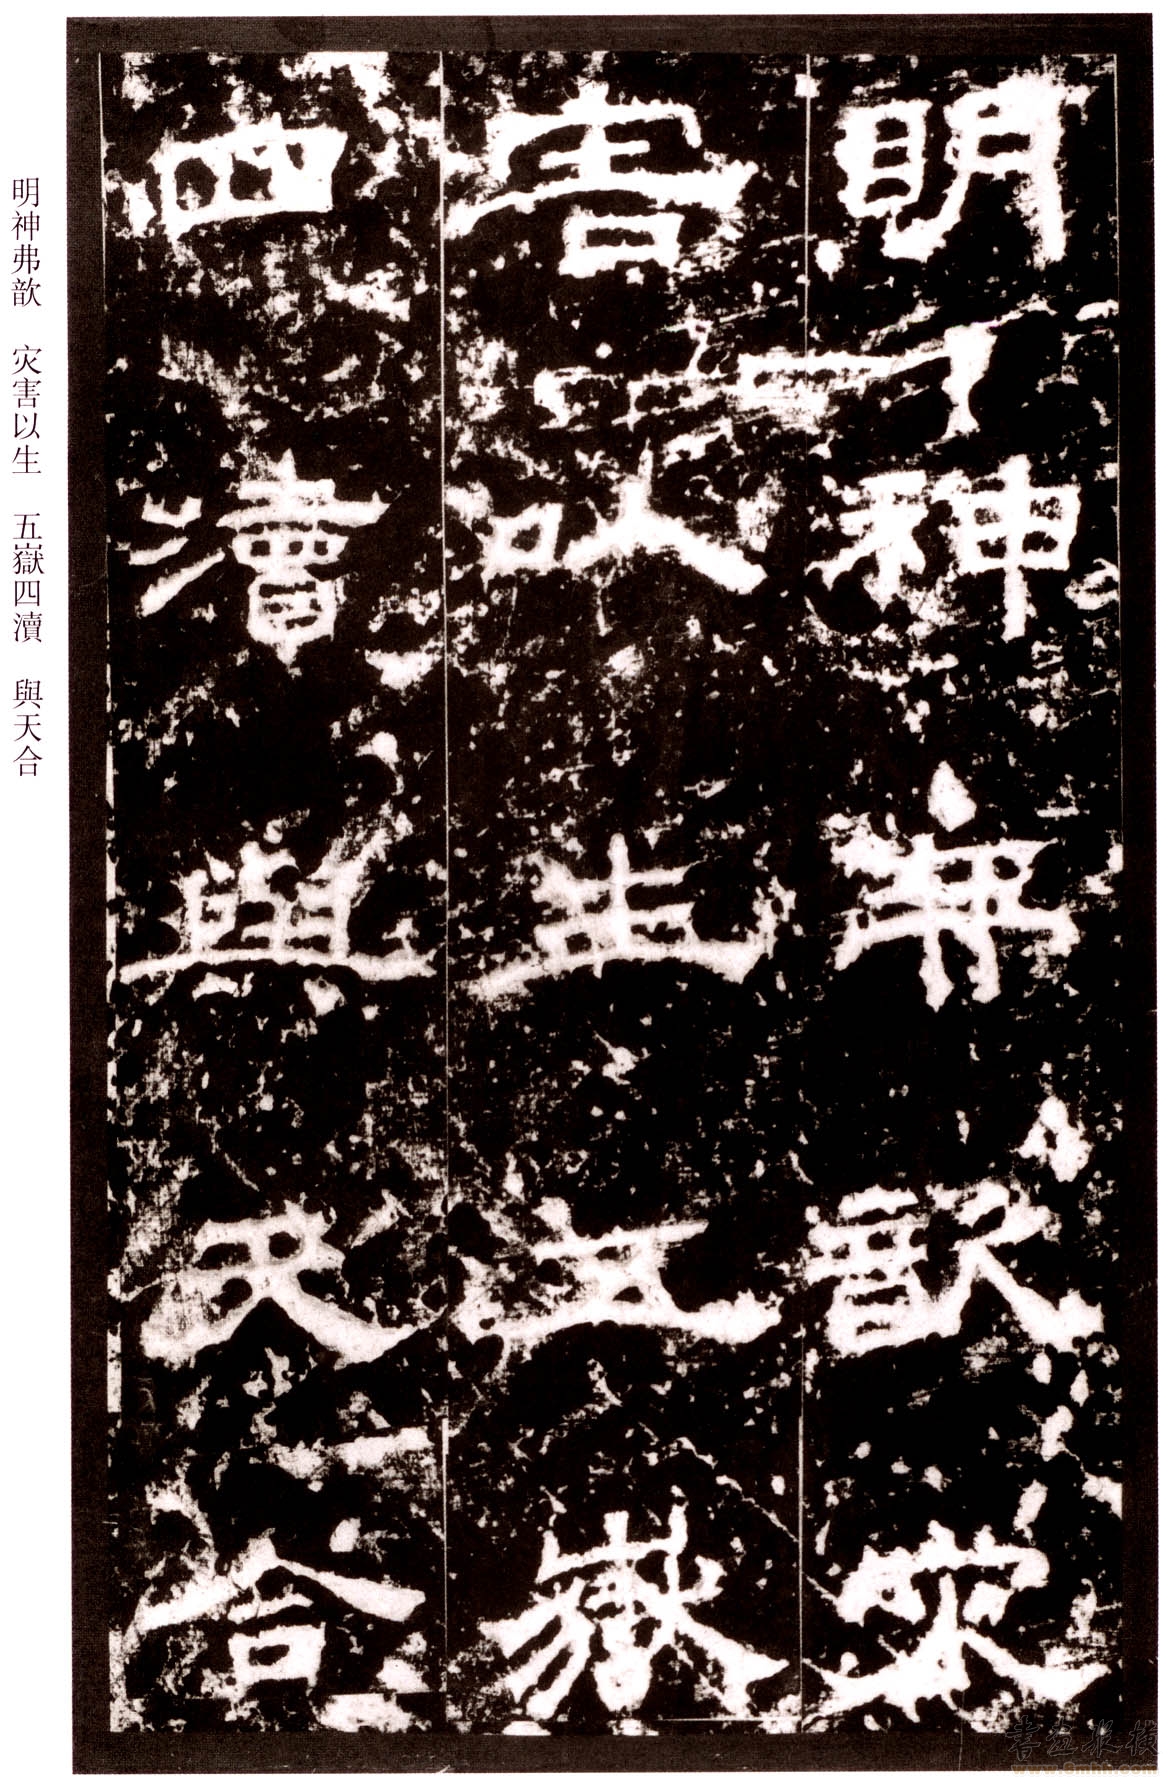 明神弗歆灾
害以生五嶽
四瀆與天合
明神弗歆　灾害以生　五嶽四瀆　與天合
書畫縱橫